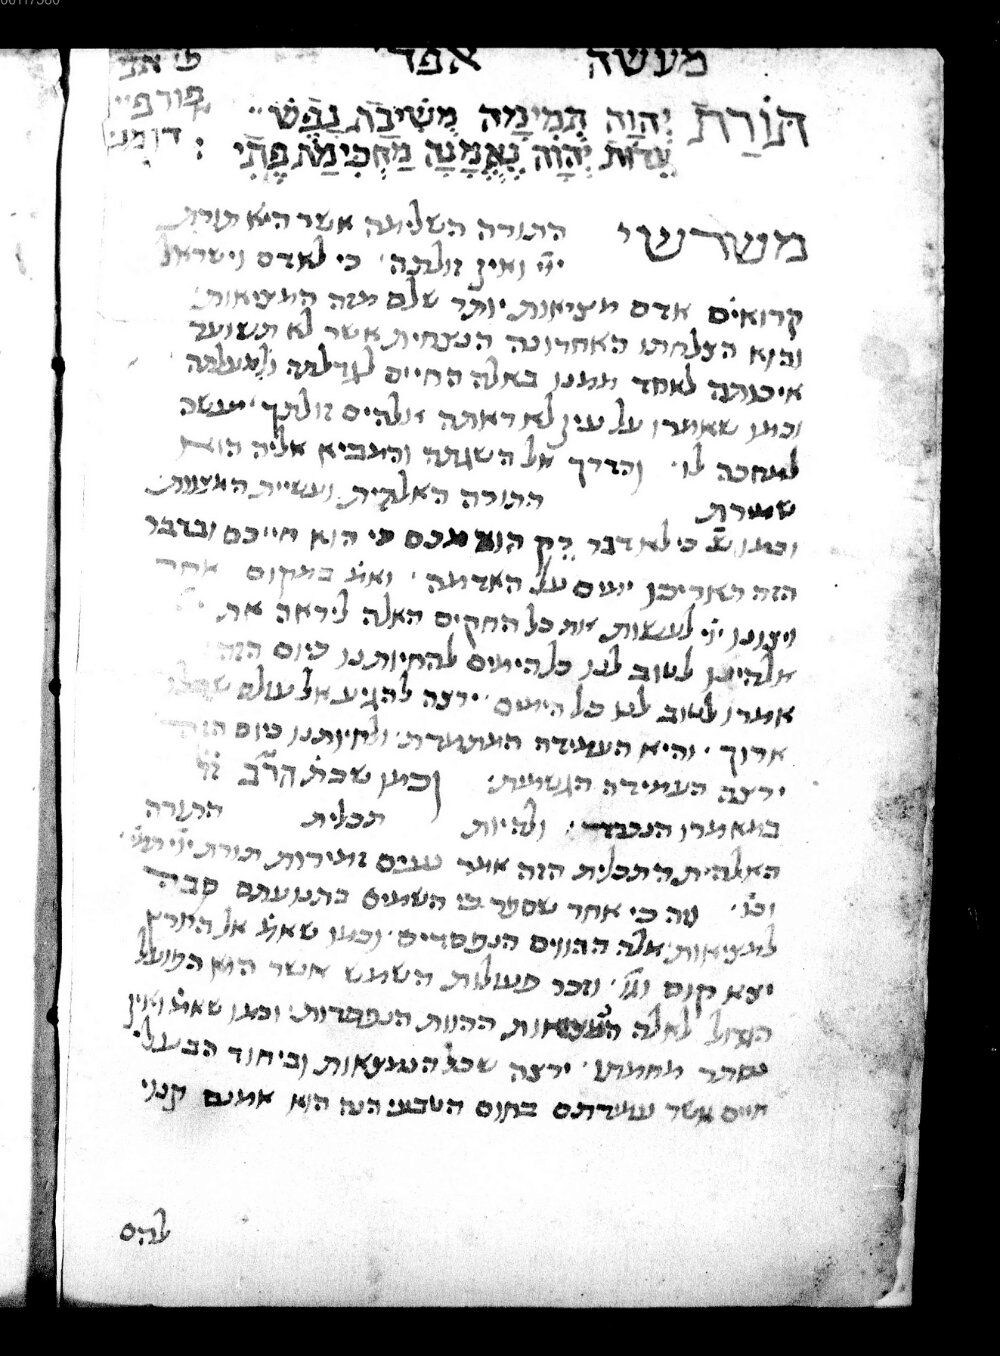 מעשה אפד
תּוֹרַת יְהוָה תְּמִימָה מְשִׁיבַת נָפֶשׁ
עֵדוּת יְהוָה נֶאֱמָנָה מַחְכִּימַת פֶּתִי :
משרשי התורה השלימה אשר היא תורת
ייי ואין זולתה כי לאדם וישראל
קרואים אדם מציאות יותר שלם מזה המציאות
והוא הצלחתו האחרונה הנצחית אשר לא תשוער
איכותה לאחד ממנו באלה החיים לגדלתה ולמעלתה
וכמו שאמרו על עין לא ראתה אלהים זולתך יעשה
למחכה לו והדרך אל השגתה והמביא אליה הוא
שמירת התורה האלהית ועשיית המצות
וכמו ש כי לא דבר רֵק הוא מכם כי הוא חייכם ובדבר
הזה תאריכו ימים על האדמה ואמ במקום אחר
ויצונו ייי לעשות את כל החקים האלה ליראה את
אלהינו לטוב לנו כל הימים להחיותנו כיום הזה
אמרו לטוב לנו כל הימים ירצה להגיע אל עולם שכלו
ארוך והיא העמידה המתמדת ולחיותנו כיום הזה
ירצה העמידה הגשמית וכמו שכת הרב ז״ל
במאמרו הנכבד ולהיות תכלית התורה
האלהית התכלית הזה אמר נעים זמירות תורת ייי תמי
וכו זה כי אחר שספר כי השמים בתנועתם סבה
למציאות אלה ההווים הנפסדים וכמו שאמ אל
יצא קום וגו וזכר פעולות השמש אשר הוא הפועל
הגדול לאלה הנמצאות ההוות הנפסדות וכמו שאמ ואין
נסתר מחמתו ירצה שכל הנמצאות וביחוד הבעלי
חיים אשר עמידתם בחום הטבעי הנה הוא אמנם קנוי
להם